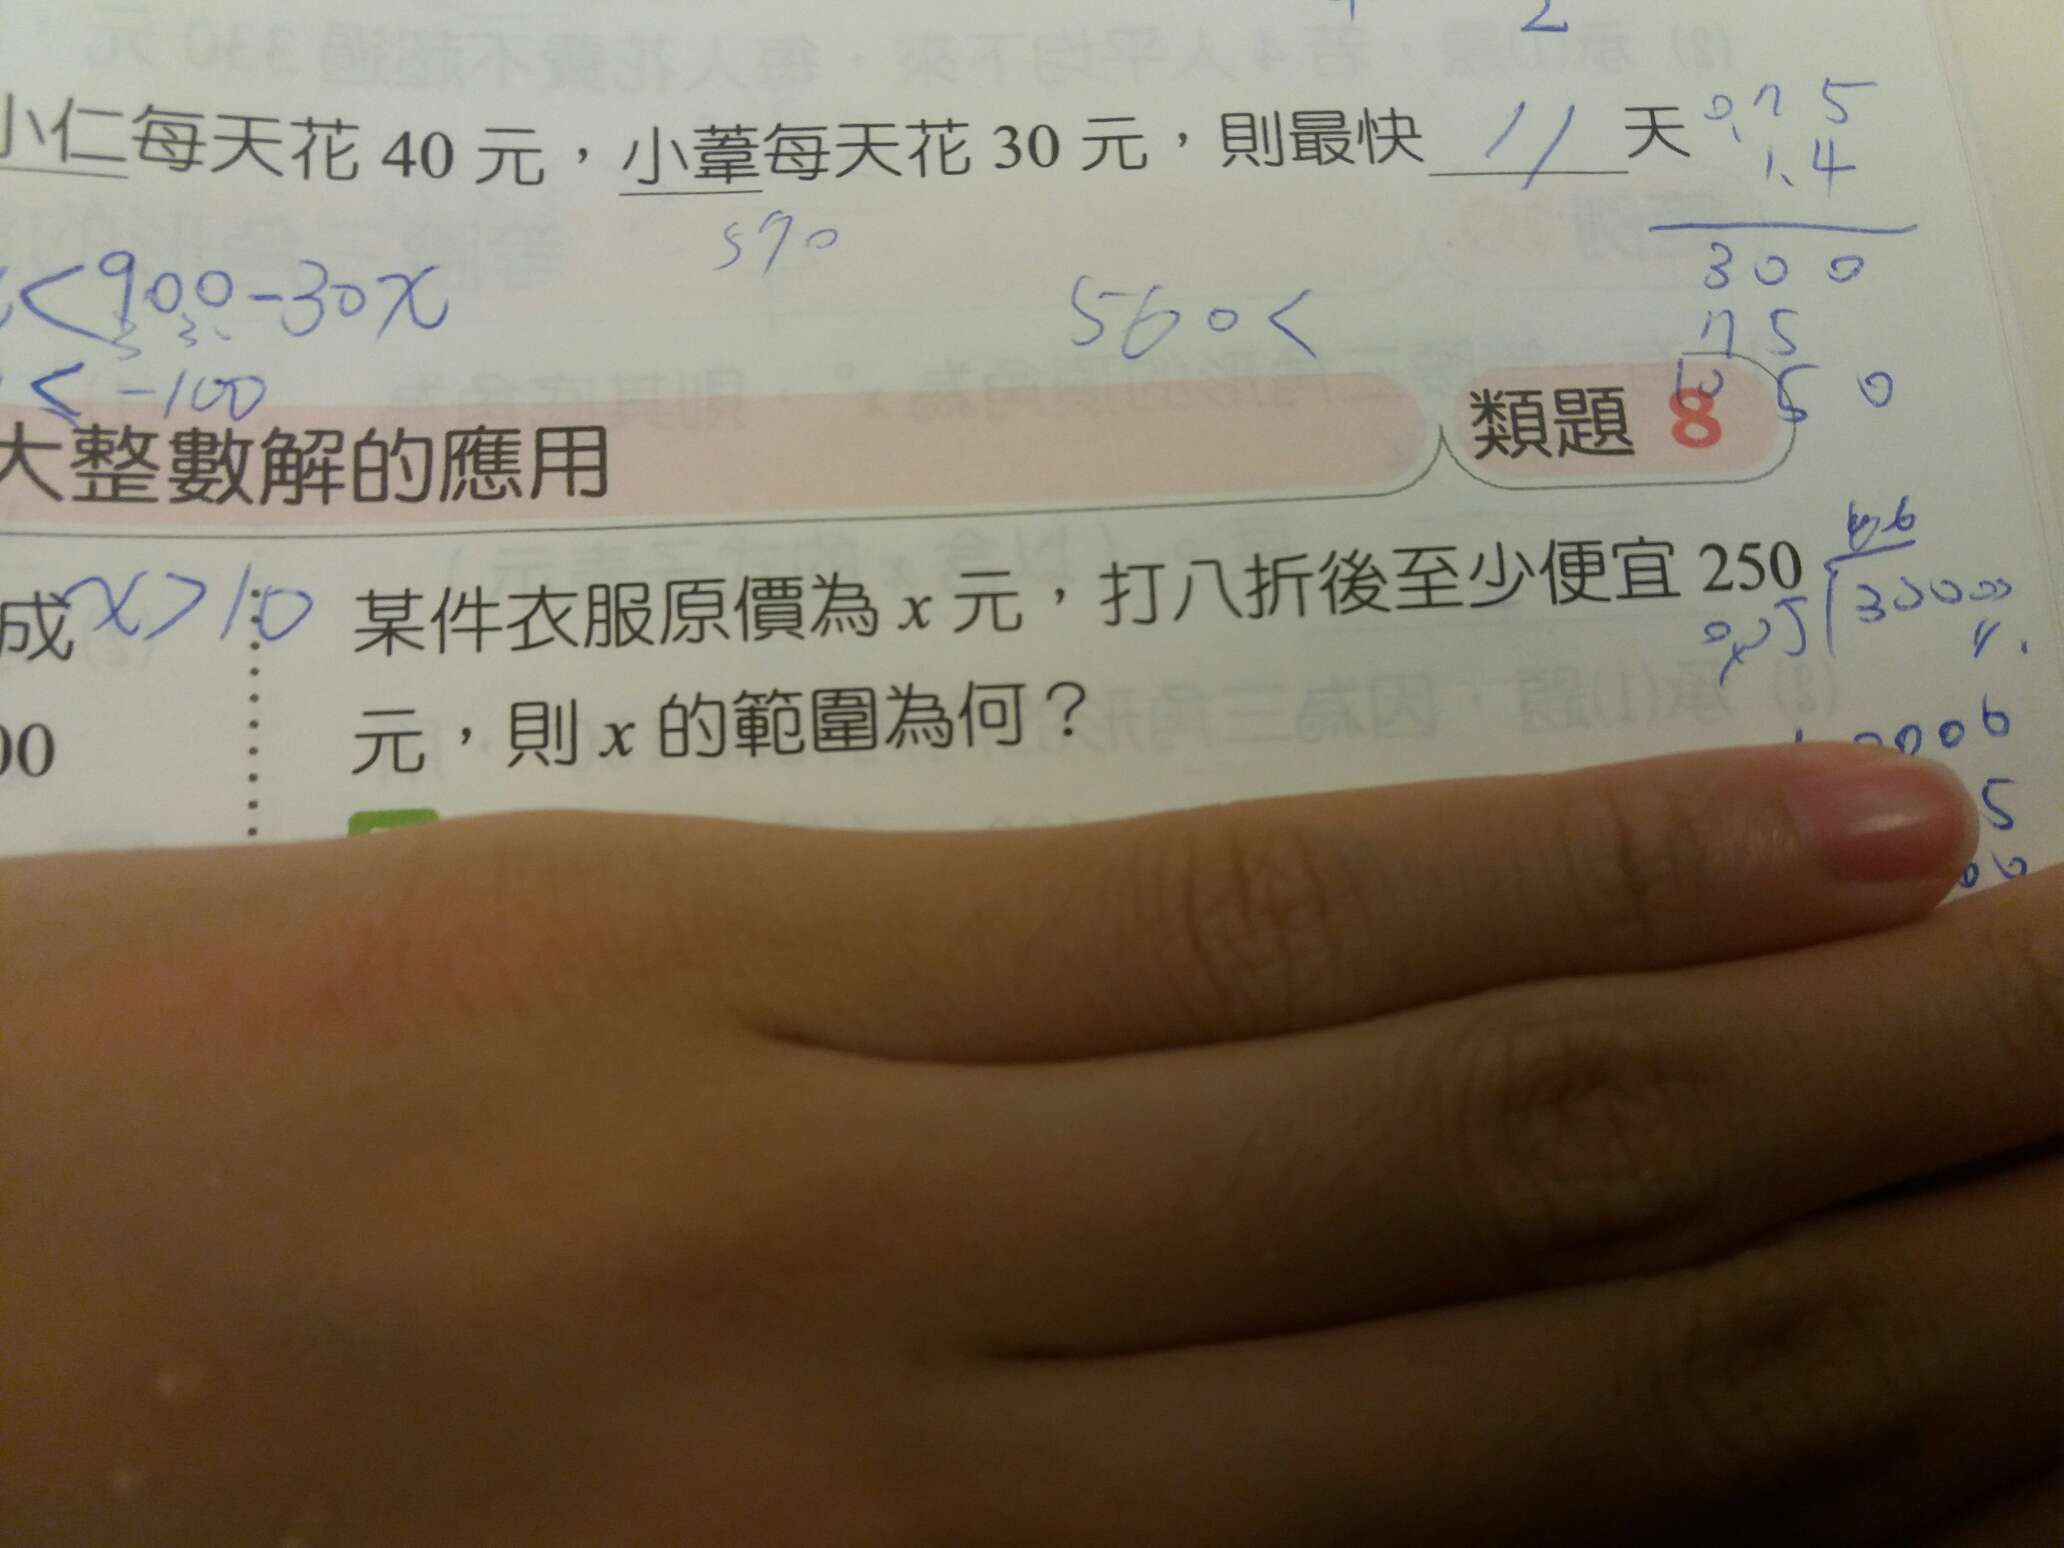 2
小仁每天花 40 元，小葦每天花 30 元，則最快 11 天
0.75
1.4
570
300
<900-30x
560<
75
<-100
1050
大整數解的應用
類題 8
成
x>10
某件衣服原價為 x 元，打八折後至少便宜 250
30000
元，則 x 的範圍為何？
00
5